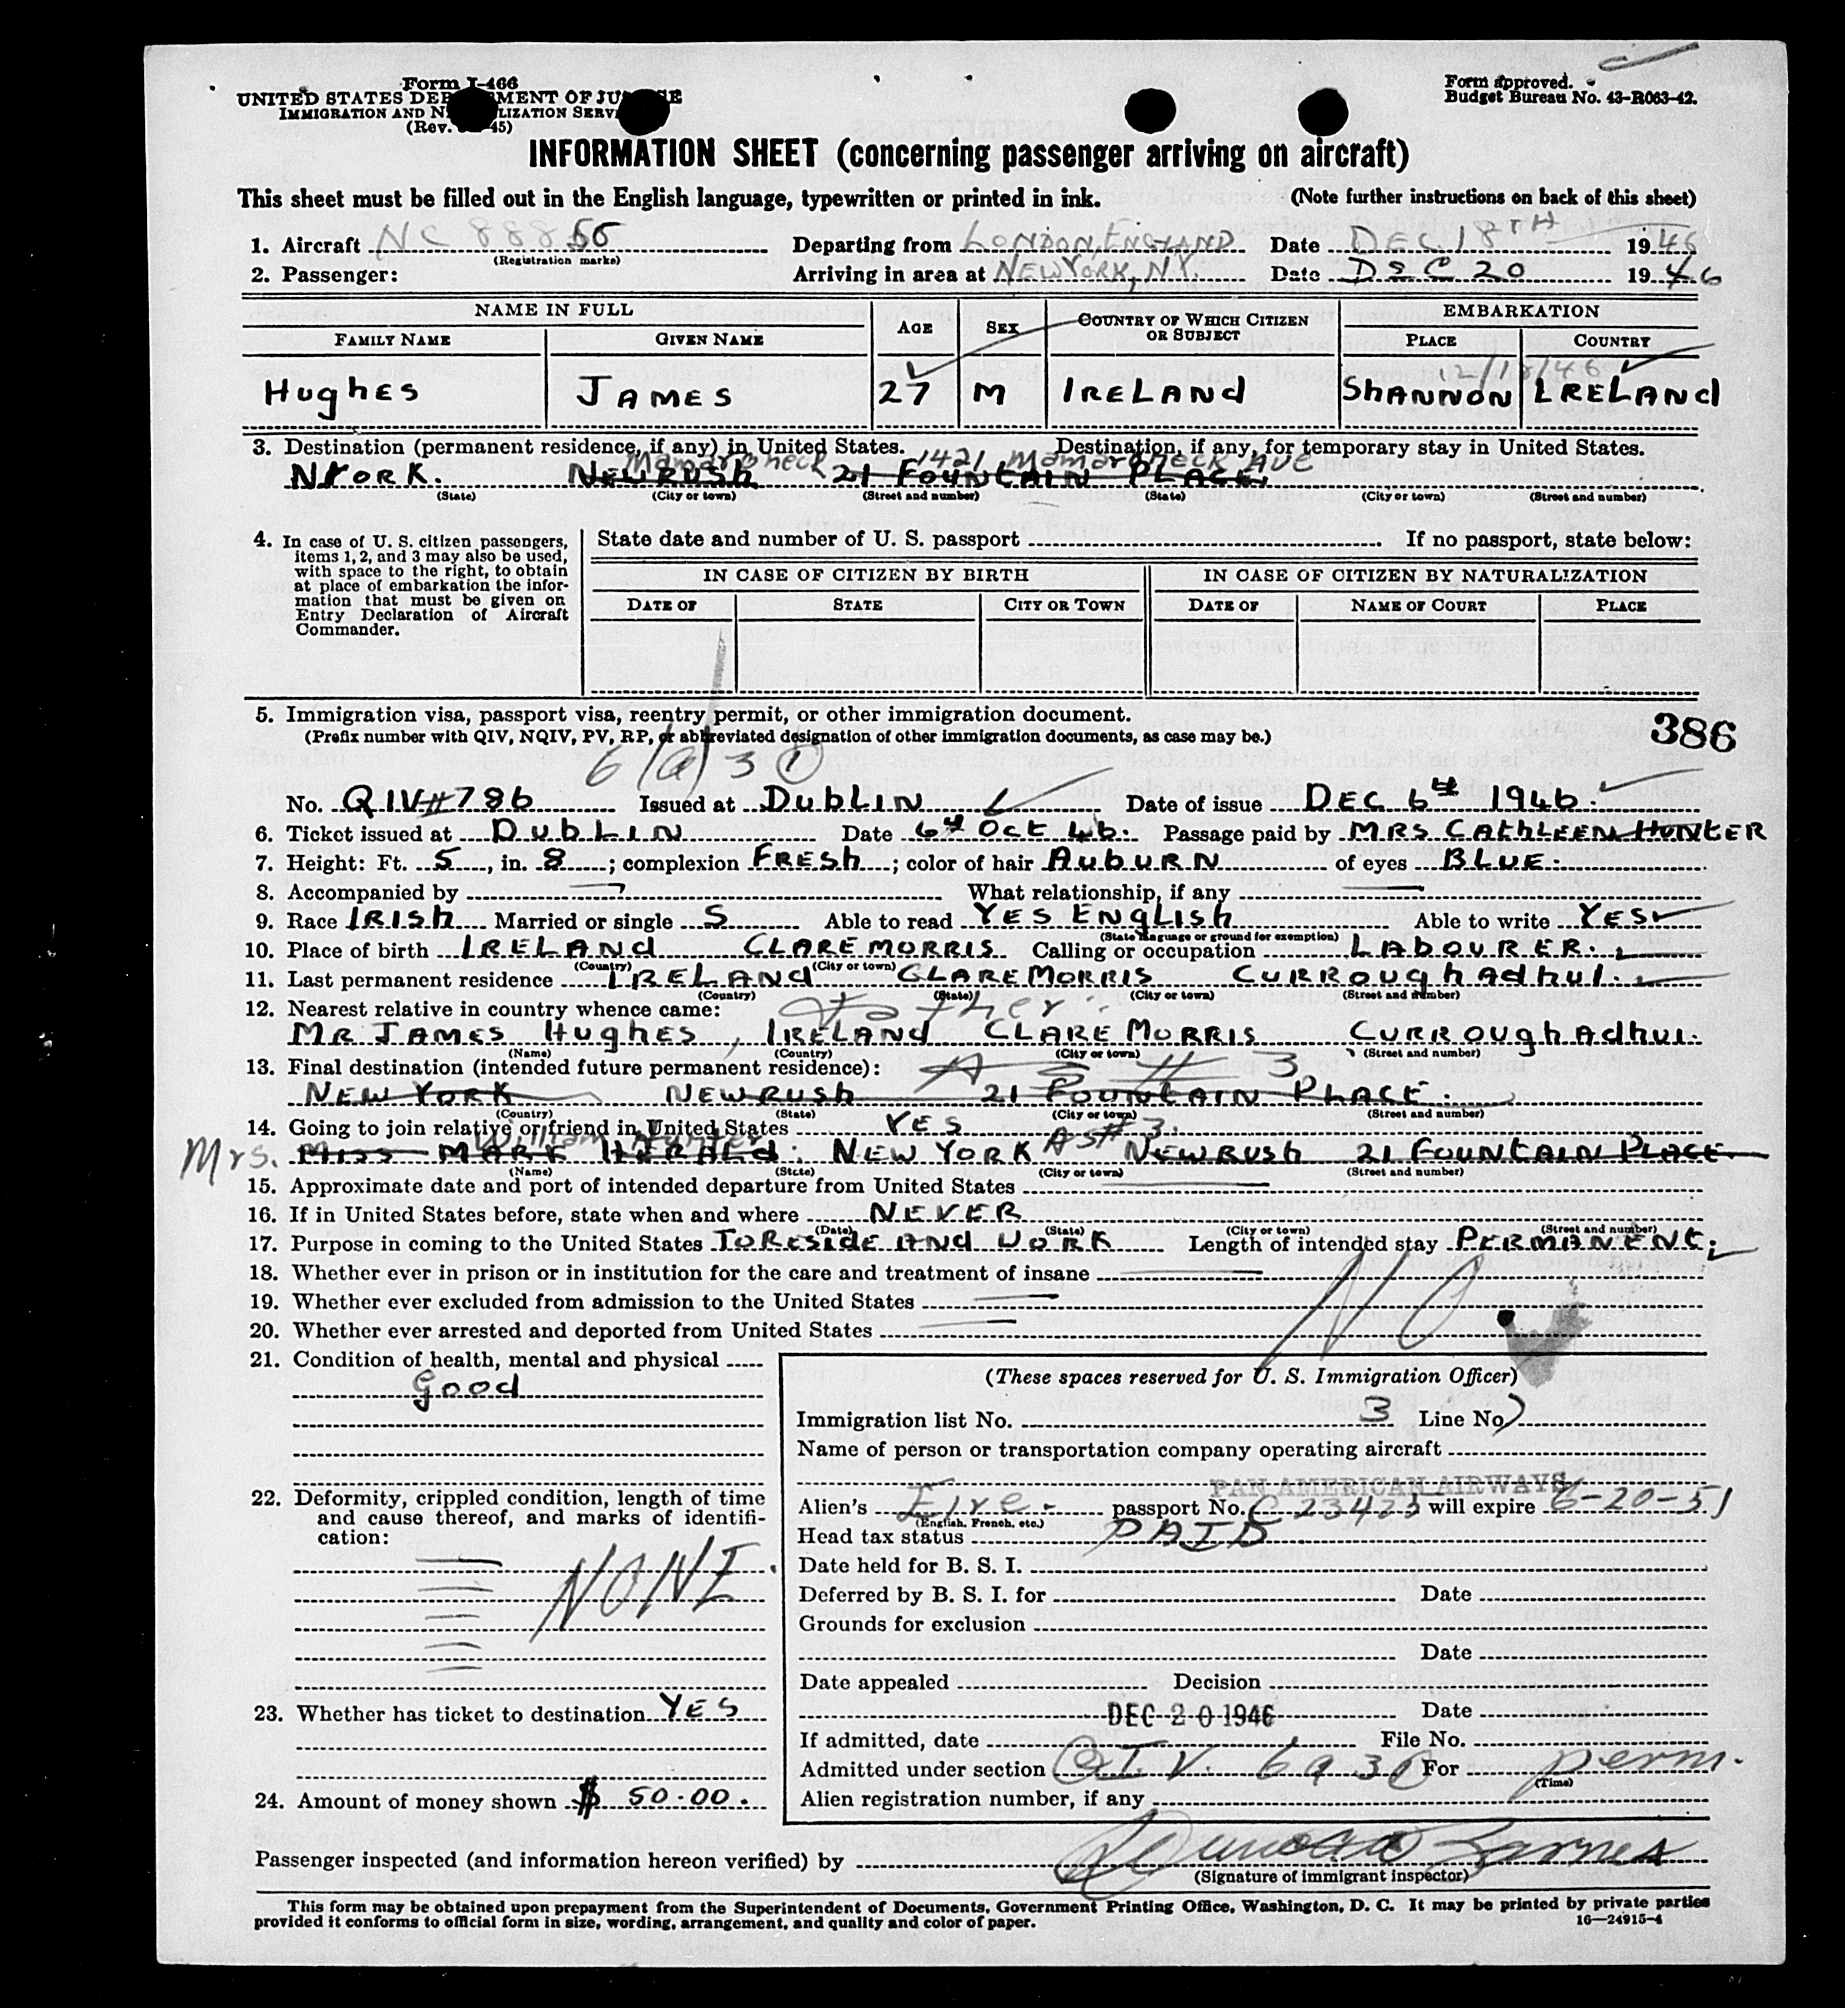 Form I-466
UNITED STATES DEPARTMENT OF JUSTICE
IMMIGRATION AND NATURALIZATION SERVICE
(Rev. 45)
Form approved.
Budget Bureau No. 43-R063-42.
INFORMATION SHEET (concerning passenger arriving on aircraft)
This sheet must be filled out in the English language, typewritten or printed in ink. (Note further instructions on back of this sheet)
1. Aircraft NC 888 Departing from LONDON, ENGLAND Date DEC. 18TH 1946
(Registration marks)
2. Passenger: Arriving in area at NEW YORK, N.Y. Date DEC 20 1946
NAME IN FULL AGE SEX COUNTRY OF WHICH CITIZEN OR SUBJECT EMBARKATION
FAMILY NAME GIVEN NAME PLACE COUNTRY
12/18/46
HughES JAMES 27 M IRELANd ShANNON IRELANd
3. Destination (permanent residence, if any) in United States. Destination, if any, for temporary stay in United States.
Mamaroneck 1421 Mamaroneck AVE
NYORK. NEWRUSH 21 FOUNTAIN PLACE.
(State) (City or town) (Street and number) (State) (City or town) (Street and number)
4. In case of U. S. citizen passengers,
items 1, 2, and 3 may also be used,
with space to the right, to obtain
at place of embarkation the infor-
mation that must be given on
Entry Declaration of Aircraft
Commander.
State date and number of U. S. passport If no passport, state below:
IN CASE OF CITIZEN BY BIRTH IN CASE OF CITIZEN BY NATURALIZATION
DATE OF STATE CITY OR TOWN DATE OF NAME OF COURT PLACE
5. Immigration visa, passport visa, reentry permit, or other immigration document.
386
(Prefix number with QIV, NQIV, PV, RP, or abbreviated designation of other immigration documents, as case may be.)
6(a)3 (1)
No. QIV#786 Issued at DUBLIN Date of issue DEC 6th 1946.
6. Ticket issued at DUBLIN Date 6th OCt 46. Passage paid by MRS CAThLEEN HUNtER
7. Height: Ft. 5, in. 8; complexion FRESh; color of hair AUBURN of eyes BLUE.
8. Accompanied by What relationship, if any
9. Race IRISh Married or single S Able to read YES ENglISh Able to write YES
(State language or ground for exemption)
10. Place of birth IRELANd CLAREMORRIS Calling or occupation LABOURER.
(Country) (City or town)
11. Last permanent residence IRELANd CLAREMORRIS CURROUghAdhUI.
(Country) (State) (City or town) (Street and number)
12. Nearest relative in country whence came: father.
MR JAMES HUghES, IRELANd CLAREMORRIS CURROUghAdhUI.
(Name) (Country) (City or town) (Street and number)
13. Final destination (intended future permanent residence): AS # 3
NEW YORK NEWRUSh 21 FOUNTAIN PLACE.
(Country) (State) (City or town) (Street and number)
14. Going to join relative or friend in United States YES
William Hunter AS# 3.
Mrs. MISS MARK HERALd. NEW YORK NEWRUSh 21 FOUNtAIN PLACE
(Name) (State) (City or town) (Street and number)
15. Approximate date and port of intended departure from United States
16. If in United States before, state when and where NEVER
(Date) (State) (City or town) (Street and number)
17. Purpose in coming to the United States TO RESIdE ANd WORK Length of intended stay PERMANENt.
18. Whether ever in prison or in institution for the care and treatment of insane
19. Whether ever excluded from admission to the United States NO
20. Whether ever arrested and deported from United States
21. Condition of health, mental and physical
good
(These spaces reserved for U. S. Immigration Officer)
Immigration list No. 3 Line No.
Name of person or transportation company operating aircraft
PAN AMERICAN AIRWAYS
22. Deformity, crippled condition, length of time
and cause thereof, and marks of identifi-
cation:
NONE
Alien's Eire passport No. C 23423 will expire 6-20-51
(English, French, etc.)
Head tax status PAID
Date held for B. S. I.
Deferred by B. S. I. for Date
Grounds for exclusion
Date
Date appealed Decision
23. Whether has ticket to destination YES
DEC 20 1946 Date
If admitted, date File No.
Admitted under section Q.I.V. 6a3(1) For perm.
(Time)
24. Amount of money shown $ 50.00.
Alien registration number, if any
Passenger inspected (and information hereon verified) by
(Signature of immigrant inspector)
This form may be obtained upon prepayment from the Superintendent of Documents, Government Printing Office, Washington, D. C. It may be printed by private parties
provided it conforms to official form in size, wording, arrangement, and quality and color of paper.
16—24915-4